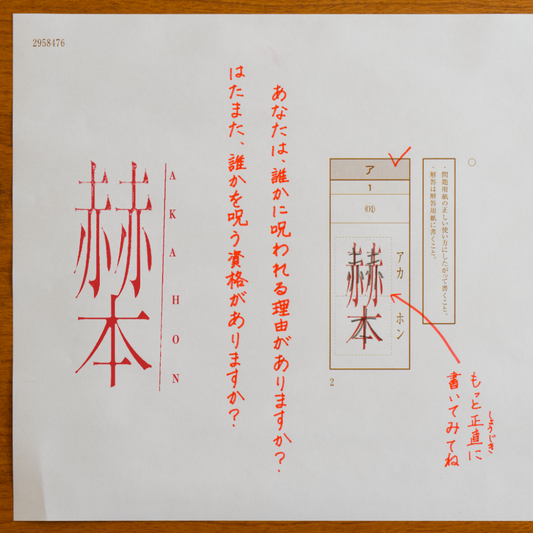 2958476
問題用紙の正しい使い方にしたがって書くこと。
解答は解答用紙に書くこと。
ア
1
アカ ホン
赫本
2
もっと正直に
しょうじき
書いてみてね
あなたは、誰かに呪われる理由がありますか?
はたまた、誰かを呪う資格がありますか?
AKA HON
赫本